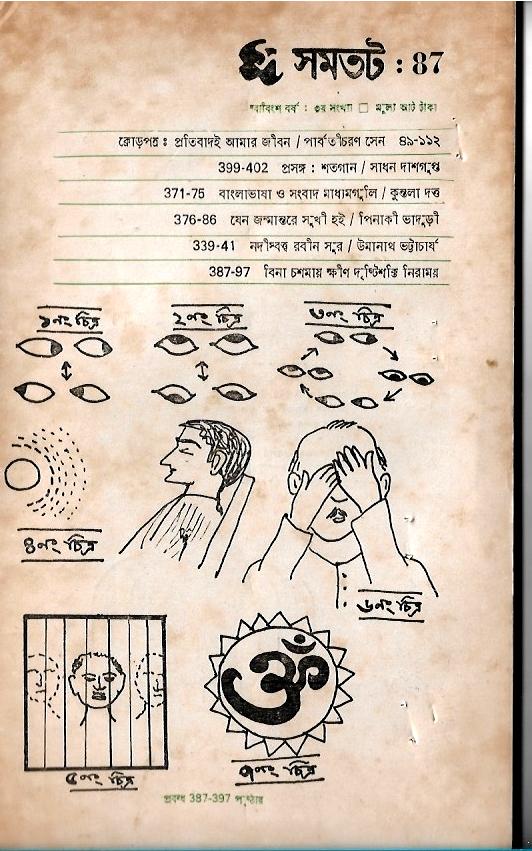 সমতট : 87
দ্বাবিংশ বর্ষ : ৩য় সংখ্যা □ মূল্য আট টাকা
ক্রোড়পত্র : প্রতিবাদই আমার জীবন / পার্বতীচরণ সেন ৪৯-১১২
399-402 প্রসঙ্গ : শতগান / সাধন দাশগুপ্ত
371-75 বাংলাভাষা ও সংবাদ মাধ্যমগুলি / কুন্তলা দত্ত
376-86 যেন জন্মান্তরে সুখী হই / পিনাকী ভাদুড়ী
339-41 নদীস্বত্ব রবীন সুর / উমানাথ ভট্টাচার্য
387-97 বিনা চশমায় ক্ষীণ দৃষ্টিশক্তি নিরাময়
১নং চিত্র ২নং চিত্র ৩নং চিত্র
৪নং চিত্র
৬নং চিত্র
ॐ
৫নং চিত্র ৭নং চিত্র
প্রবন্ধ 387-397 পৃষ্ঠায়